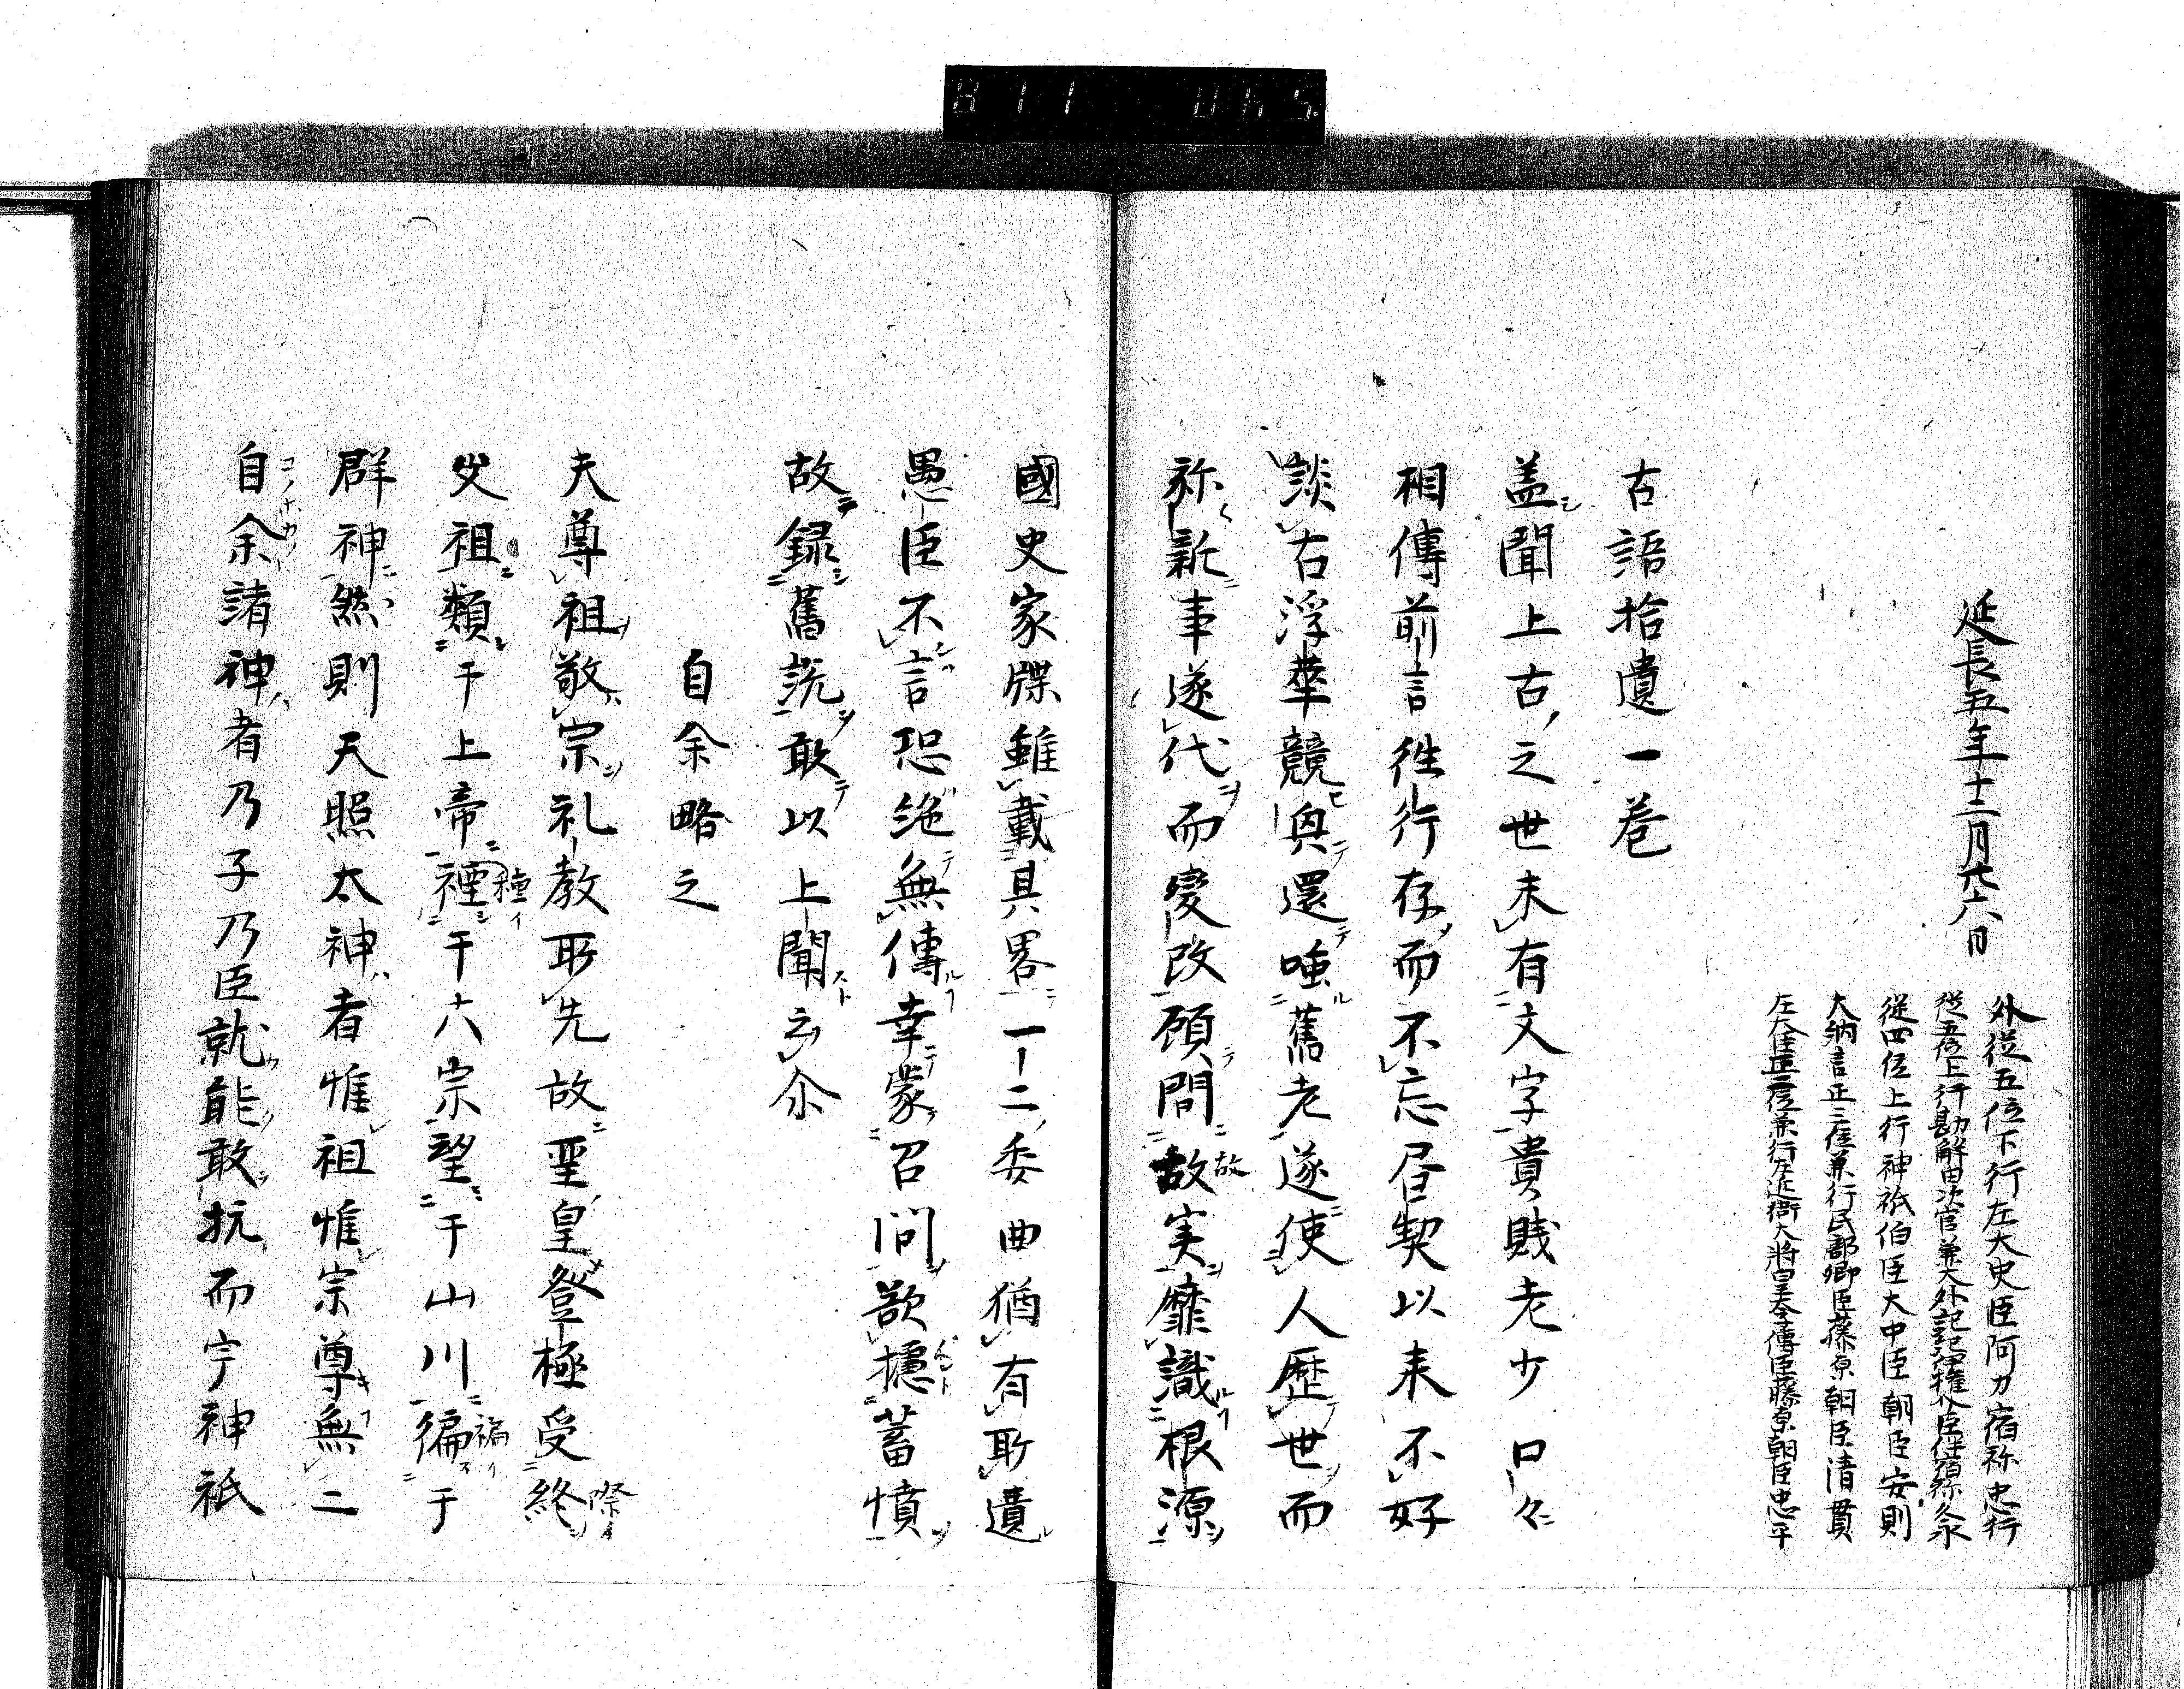 延長五年十二月廿六日
外従五位下行左大史臣阿刀宿祢忠行
従五位上行勘解由次官兼大外記紀伊権介臣伴宿祢久永
従四位上行神祇伯臣大中臣朝臣安則
大納言正三位兼行民部卿臣藤原朝臣清貫
左大臣正二位兼行左近衛大将皇太子傅臣藤原朝臣忠平
古語拾遺一巻
盖聞上古之世未有文字貴賤老少口々
相傳前言徃行存而不忘昼契以来不好
談古浮華競興還嗤舊老遂使人歴世而
弥新事遂代而変改顧問故実靡識根源
國史家牒雖載其畧一二委曲猶有所遺
愚臣不言恐絶無傳幸蒙召問欲攄蓄憤
故録舊説敢以上聞云尒
自余略之
夫尊祖敬宗礼教所先故聖皇登極受終
文祖類于上帝禋于六宗望于山川徧于
群神然則天照太神者惟祖惟宗尊無二
自余諸神者乃子乃臣孰能敢抗而宁神祇